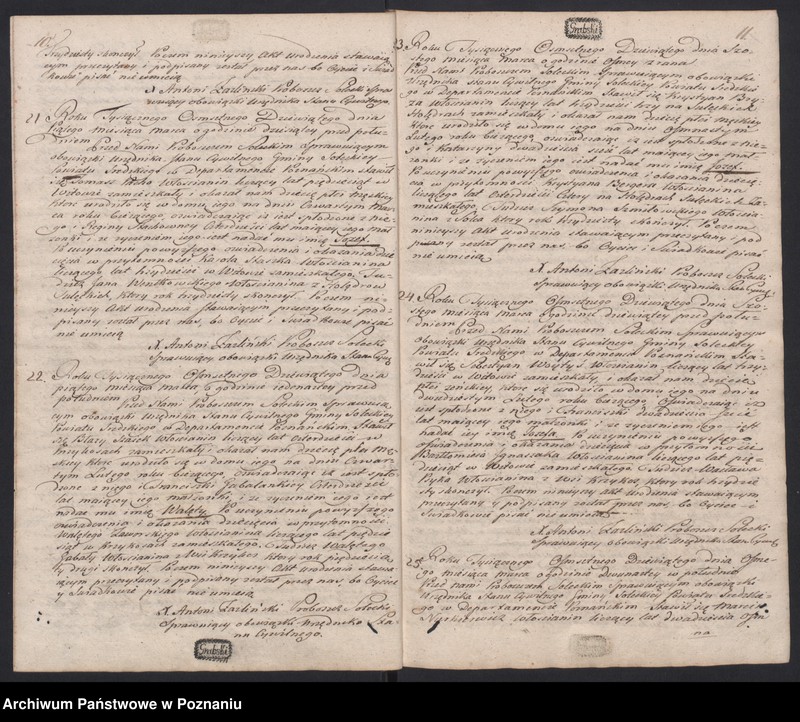 10.
Trzydzieści skończył. Poczem niniejszy Akt urodzenia stawaią
cym przeczytany i podpisany został przez nas, bo Oyciec i Świad
kowie pisać nie umieią
X Antoni Zarliński Proboszcz Solecki Spra
wuiący obowiązki Urzędnika Stanu Cywilnego.
21. Roku Tysiącznego Osmsetnego Dziewiątego dnia
piątego miesiąca marca o godzinie dziewiątey przed połu
dniem
Przed Nami Proboszczem Soleckim Sprawuiącym
obowiązki Urzędnika Stanu Cywilnego Gminy Soleckiey
Powiatu Szredzkiego w Departamencie Poznańskim stawił
się Tomasz Włościanin liczący lat pięćdziesiąt w
Witowie zamieszkały i okazał nam dziecię płci męskiey
które urodziło się w domu iego na dniu Czwartym Mar
ca roku bieżącego, oświadczaiąc iż iest spłodzone z nie
go i Reginy czterdzieści lat maiącey iego mał
żonki i że życzeniem iego iest nadać mu imię Jozef.
Po uczynieniu powyższego oświadczenia i okazania dzie
cięcia w przytomności Karola Włościanina
liczącego lat trzydzieści w Witowie zamieszkałego, Tu
dzież Jana Włościanina z Holendrow
który rok trzydziesty skończył. Poczem ni
nieyszy Akt urodzenia stawaiącym przeczytany i pod
pisany został przez nas, bo Oyciec i Świadkowie pisać
nie umieią
X Antoni Zarliński Proboszcz Solecki
Sprawuiący obowiązki Urzędnika Stanu Cywilneg
22. Roku Tysiącznego Osmsetnego Dziewiątego dnia
piątego miesiąca marca o godzinie iedenastey przed
południem
Przed Nami Proboszczem Soleckim Sprawuią
cym obowiązki Urzędnika Stanu Cywilnego Gminy Soleckiey
Powiatu Szredzkiego w Departamencie Poznańskim Stawił
się Błażej Stasiek Włościanin liczący lat czterdzieści w
Krzykosach zamieszkały i okazał nam dziecię płci mę
skiey które urodziło się w domu iego na dniu Czwar
tym Lutego roku bieżącego Oświadczaiąc iż iest spło
dzone z niego i Franciszki Gabalankiey trzydzieście
lat maiącey iego małżonki, i że życzeniem iego iest
nadać mu imię Walęty. Po uczynieniu powyższego
oświadczenia i okazania dziecięcia w przytomności
Walętego Ławniskiego Włościanina liczącego lat pięćdzie
siąt w Krzykosach zamieszkałego, Tudzież Walętego
Gabały Włościanina z Wsi Krzykos który rok pięćdziesią
ty drugi skończył. Poczem niniejszy Akt urodzenia stawa
iącym przeczytany i podpisany został przez nas, bo Oyciec
i Świadkowie pisać nie umieią
X Antoni Zarliński Proboszcz Solecki
Sprawuiący obowiązki Urzędnika Sta
nu Cywilnego.
Grubski
Grubski
11.
23. Roku Tysiącznego Osmsetnego Dziewiątego dnia Szo
stego miesiąca marca o godzinie Osmey z rana
Przed Nami Proboszczem Soleckim Sprawuiącym obowiązki
Urzędnika Stanu Cywilnego Gminy Soleckiey Powiatu Szredzki
ego w Departamencie Poznańskim Stawił się Krystyan Ber
ga Włościanin liczący lat trzydzieści trzy na
Holędrach zamieszkały i okazał nam dziecię płci męskiey
które urodziło się w domu iego na dniu Osmnastym
Lutego roku bieżącego, oświadczaiąc iż iest spłodzone z nie
go i Katarzyny dwadzieścia sześć lat maiącey iego mał
żonki i że życzeniem iego iest nadać mu imię Jozef.
Po uczynieniu powyższego oświadczenia i okazania dziecię
cia w przytomności Krystyana Bergera Włościanina
liczącego lat czterdzieści cztery na Holędrach Sulęcki za
mieszkałego, Tudzież Szymona Samolewskiego Włościa
nina z Solca który rok trzydziesty skończył. Poczem
ninieyszy Akt urodzenia stawaiącym przeczytany i pod
pisany został przez nas, bo Oyciec i Świadkowie pisać
nie umieią
X Antoni Zarliński Proboszcz Solecki
Sprawuiący obowiązki Urzędnika Stanu Cywilneg
24. Roku Tysiącznego Osmsetnego Dziewiątego dnia Szo
stego miesiąca marca o godzinie dziewiątey przed połu
dniem
Przed Nami Proboszczem Soleckim Sprawuiącym
obowiązki Urzędnika Stanu Cywilnego Gminy Soleckiey
Powiatu Szredzkiego w Departamencie Poznańskim Sta
wił się Sobestyan Woyty Włościanin liczący lat trzy
dzieści w Witowie zamieszkały i okazał nam dziecię
płci żeńskiey które się urodziło w domu iego na dniu
Dwudziestym Lutego roku bieżącego, Oświadczaiąc iż
iest spłodzone z niego i Franciszki dwadzieścia sześć
lat maiącey iego małżonki i że życzeniem iego iest
nadać iey imię Józefa. Po uczynieniu powyższego
oświadczenia i okazania dziecięcia w przytomności
Bartłomieia Ignaszaka Włościanina liczącego lat pięć
dziesiąt w Witowie zamieszkałego, Tudzież Wacława
Pszyka Włościanina z Wsi Krzykos, który rok trzydzie
sty skończył. Poczem ninieyszy Akt Urodzenia stawaiącym
przeczytany y podpisany został przez nas, bo Oyciec i
Świadkowie pisać nie umieią
X Antoni Zarliński Proboszcz Solecki
Sprawuiący obowiązki Urzędnika Stanu Cywilneg
25. Roku Tysiącznego Osmsetnego Dziewiątego dnia Osme
go miesiąca marca o godzinie Dwunastey w południe
Przed Nami Proboszczem Soleckim Sprawuiącym obowiązki
Urzędnika Stanu Cywilnego Gminy Soleckiey Powiatu Szredzkie
go w Departamencie Poznańskim Stawił się Marcin
Włościanin liczący lat dwadzieścia Ośm
na
Archiwum Państwowe w Poznaniu